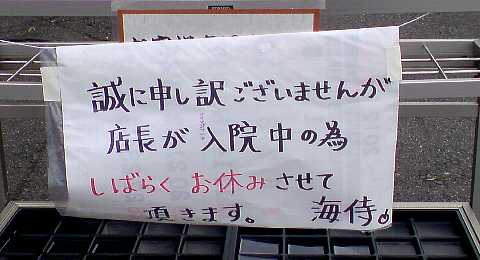 誠に申し訳ございませんが
店長が入院中の為
しばらくお休みさせて
頂きます。 海侍